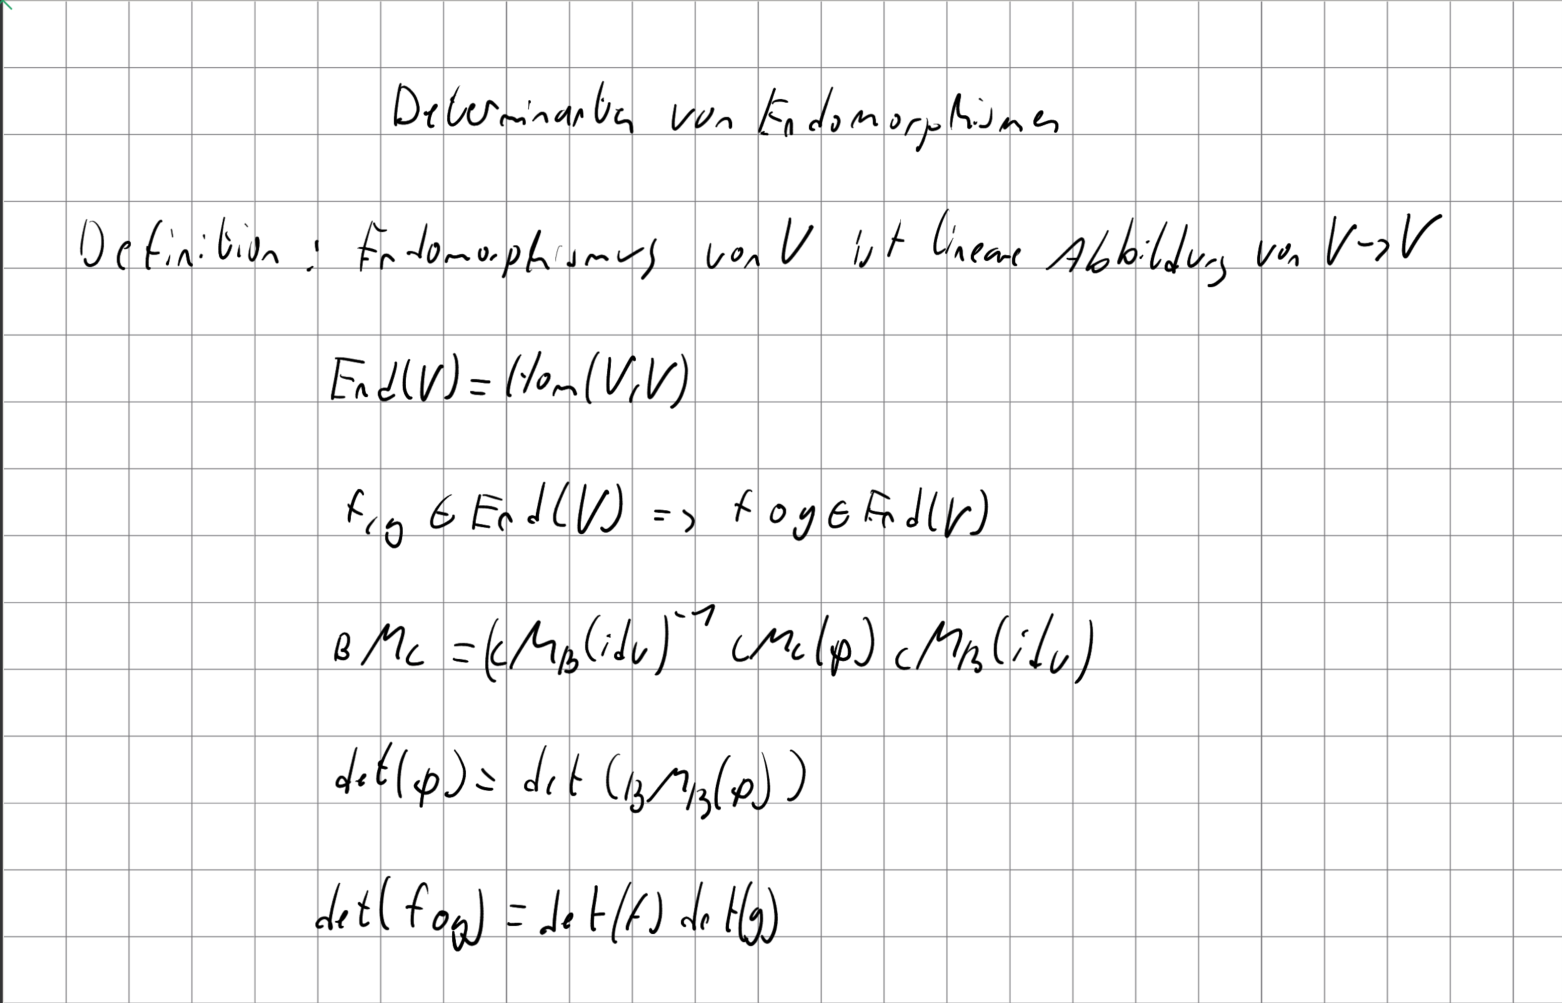 Determinanten von Endomorphismen
Definition: Endomorphismus von V ist lineare Abbildung von V->V
End(V)=Hom(V,V)
f,g ∈ End(V) => f∘g ∈ End(V)
BMC =(CMB(idv)^-1 CMC(φ) CMB(idv)
det(φ)= det (BMB(φ))
det(f∘g) = det(f) det(g)